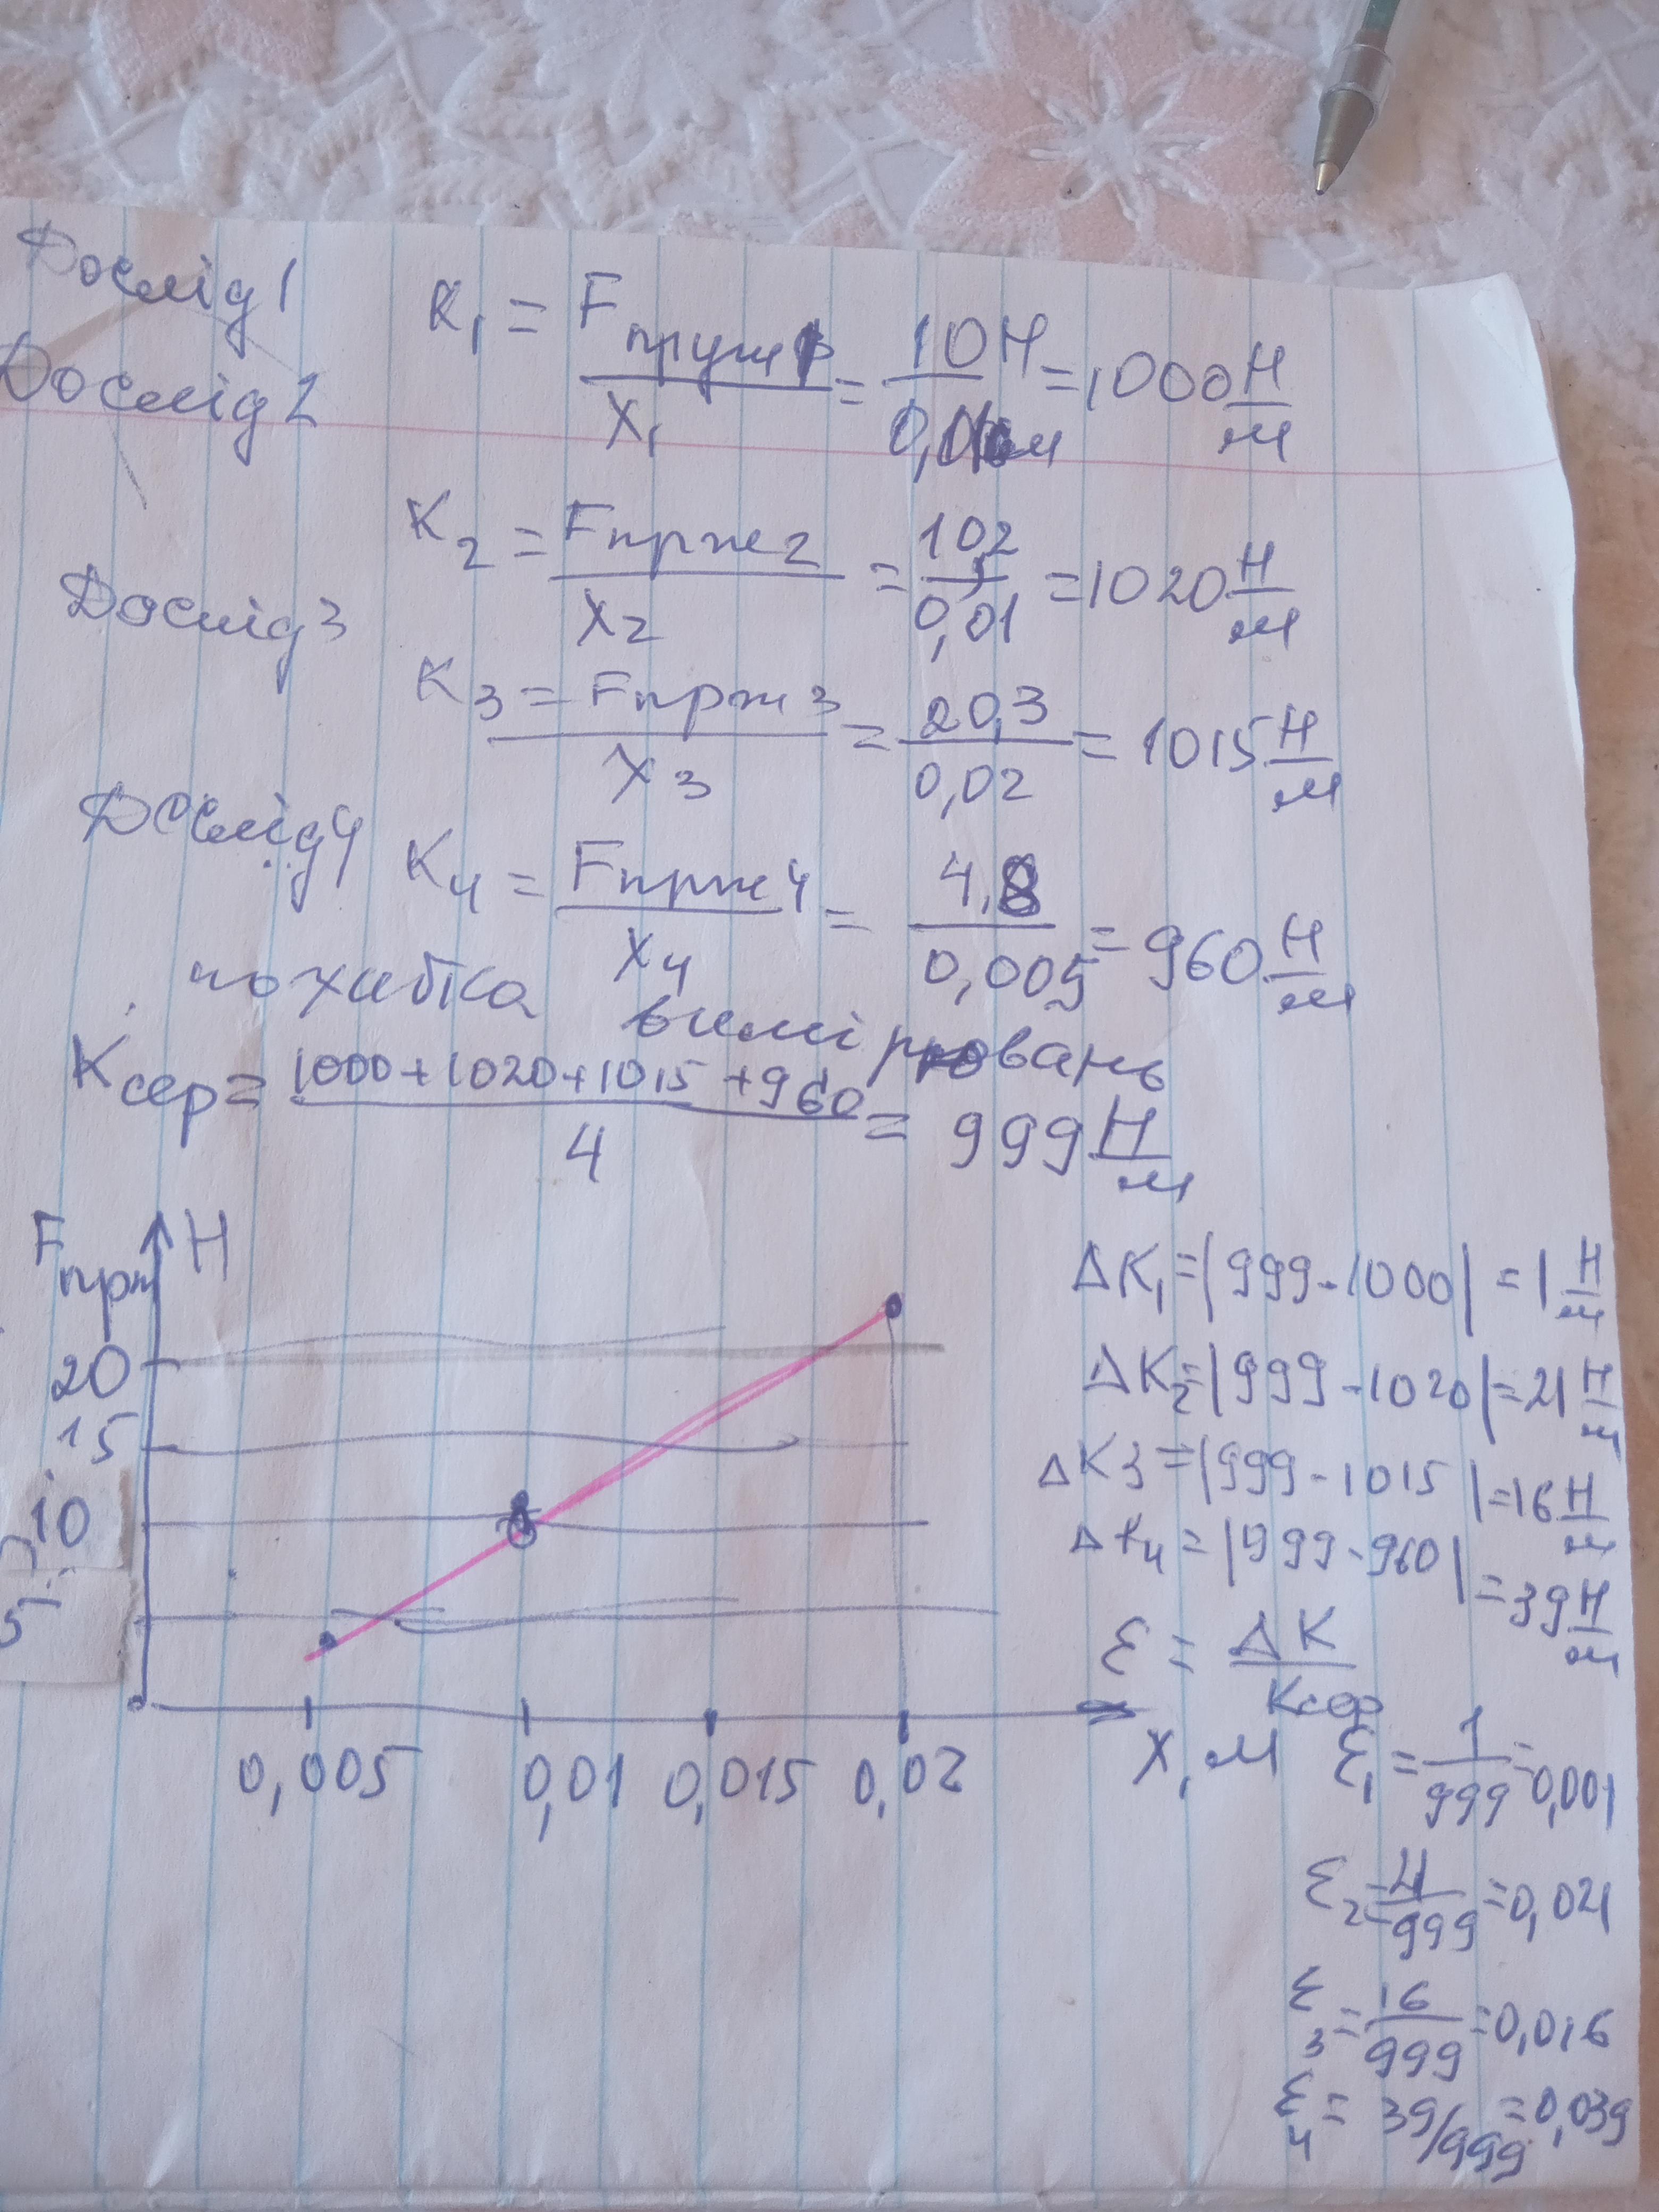 Дослід 1
K₁ = Fпруж1/X₁ = 10Н/0,01м = 1000 Н/м
Дослід 2
K₂ = Fпрж2/X₂ = 10,2/0,01 = 1020 Н/м
Дослід 3
K₃ = Fпрж3/X₃ = 20,3/0,02 = 1015 Н/м
Дослід 4
K₄ = Fпрж4/X₄ = 4,8/0,005 = 960 Н/м
похибка вимірювань
Kсер = (1000+1020+1015+960)/4 = 999 Н/м
Fпрж Н
20
15
10
5
0,005 0,01 0,015 0,02 X, м
ΔK₁ = |999-1000| = 1 Н/м
ΔK₂ = |999-1020| = 21 Н/м
ΔK3 = |999-1015| = 16 Н/м
Δt₄ = |999-960| = 39 Н/м
ε = ΔK/Kсер
ε₁ = 1/999 = 0,001
ε₂ = 21/999 = 0,021
ε₃ = 16/999 = 0,016
ε₄ = 39/999 = 0,039